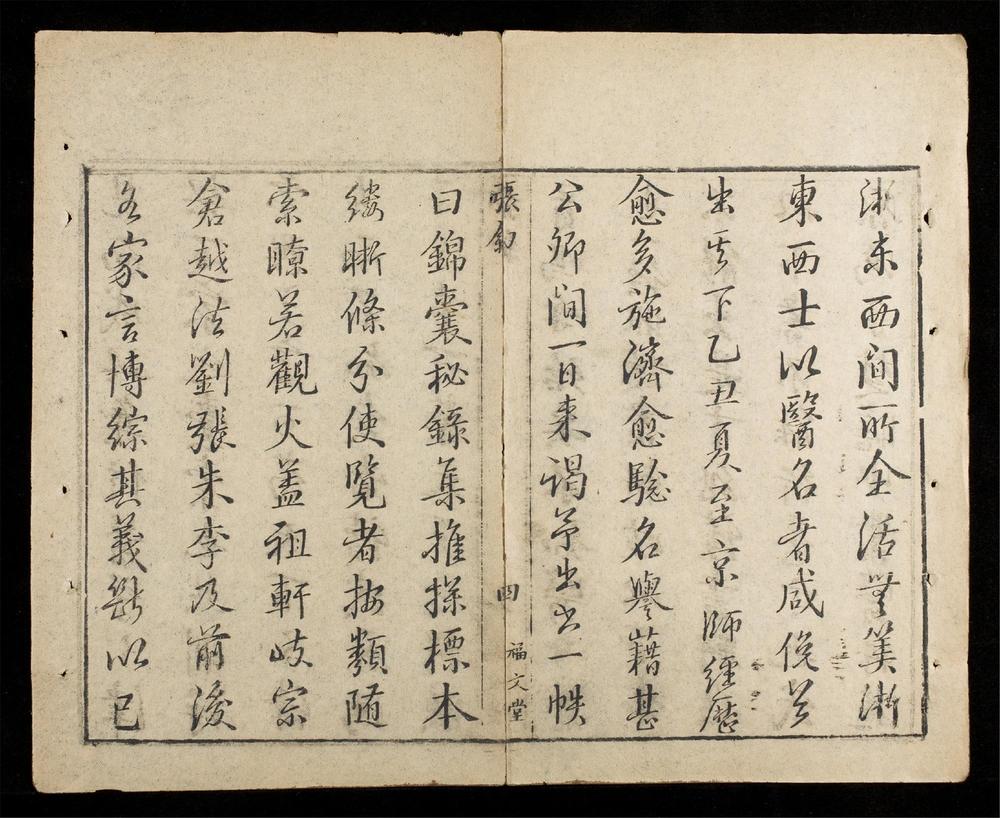 浙東西間所全活無筭浙
東西士以醫名者咸俛首
出其下乙丑夏至京師經歷
愈多施濟愈驗名譽藉甚
公卿間一日来謁予出书一帙
張
四
福文堂
曰錦囊秘錄集推探標本
縷晰條分使覽者按類随
索瞭若觀火蓋祖軒岐宗
倉越法劉張朱李及前後
各家言博綜其義斷以已